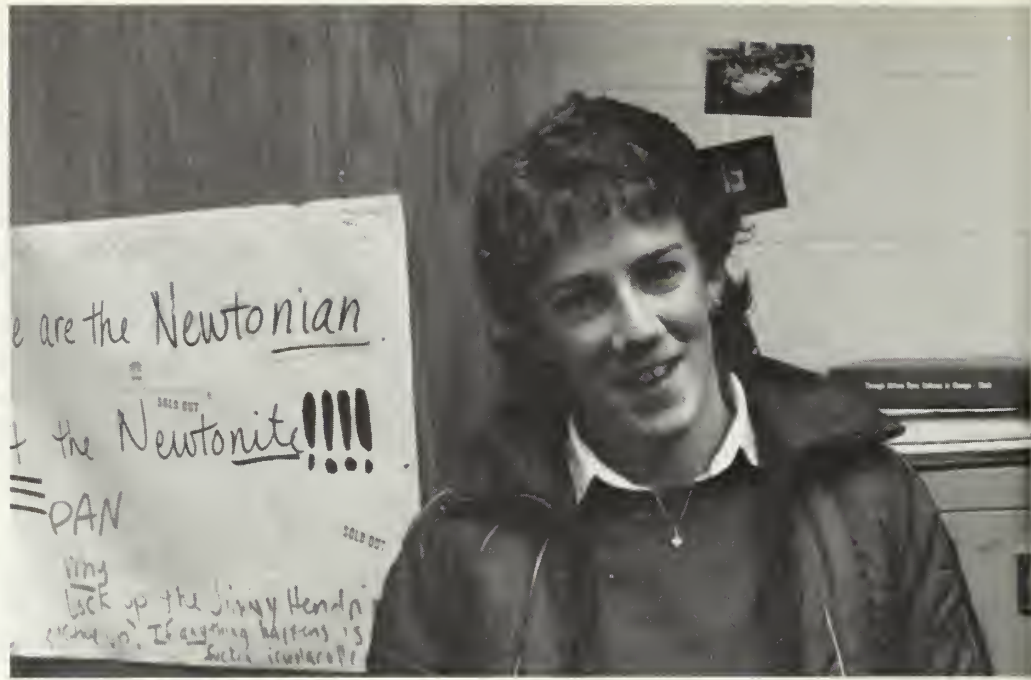 e are the Newtonian.
SOLD OUT
t the Newtonite!!!!
DAN
SOLD OUT
Lock up the Jimmy Hend
If anything happens is
Through African Eyes: Cultures in Change - Clark